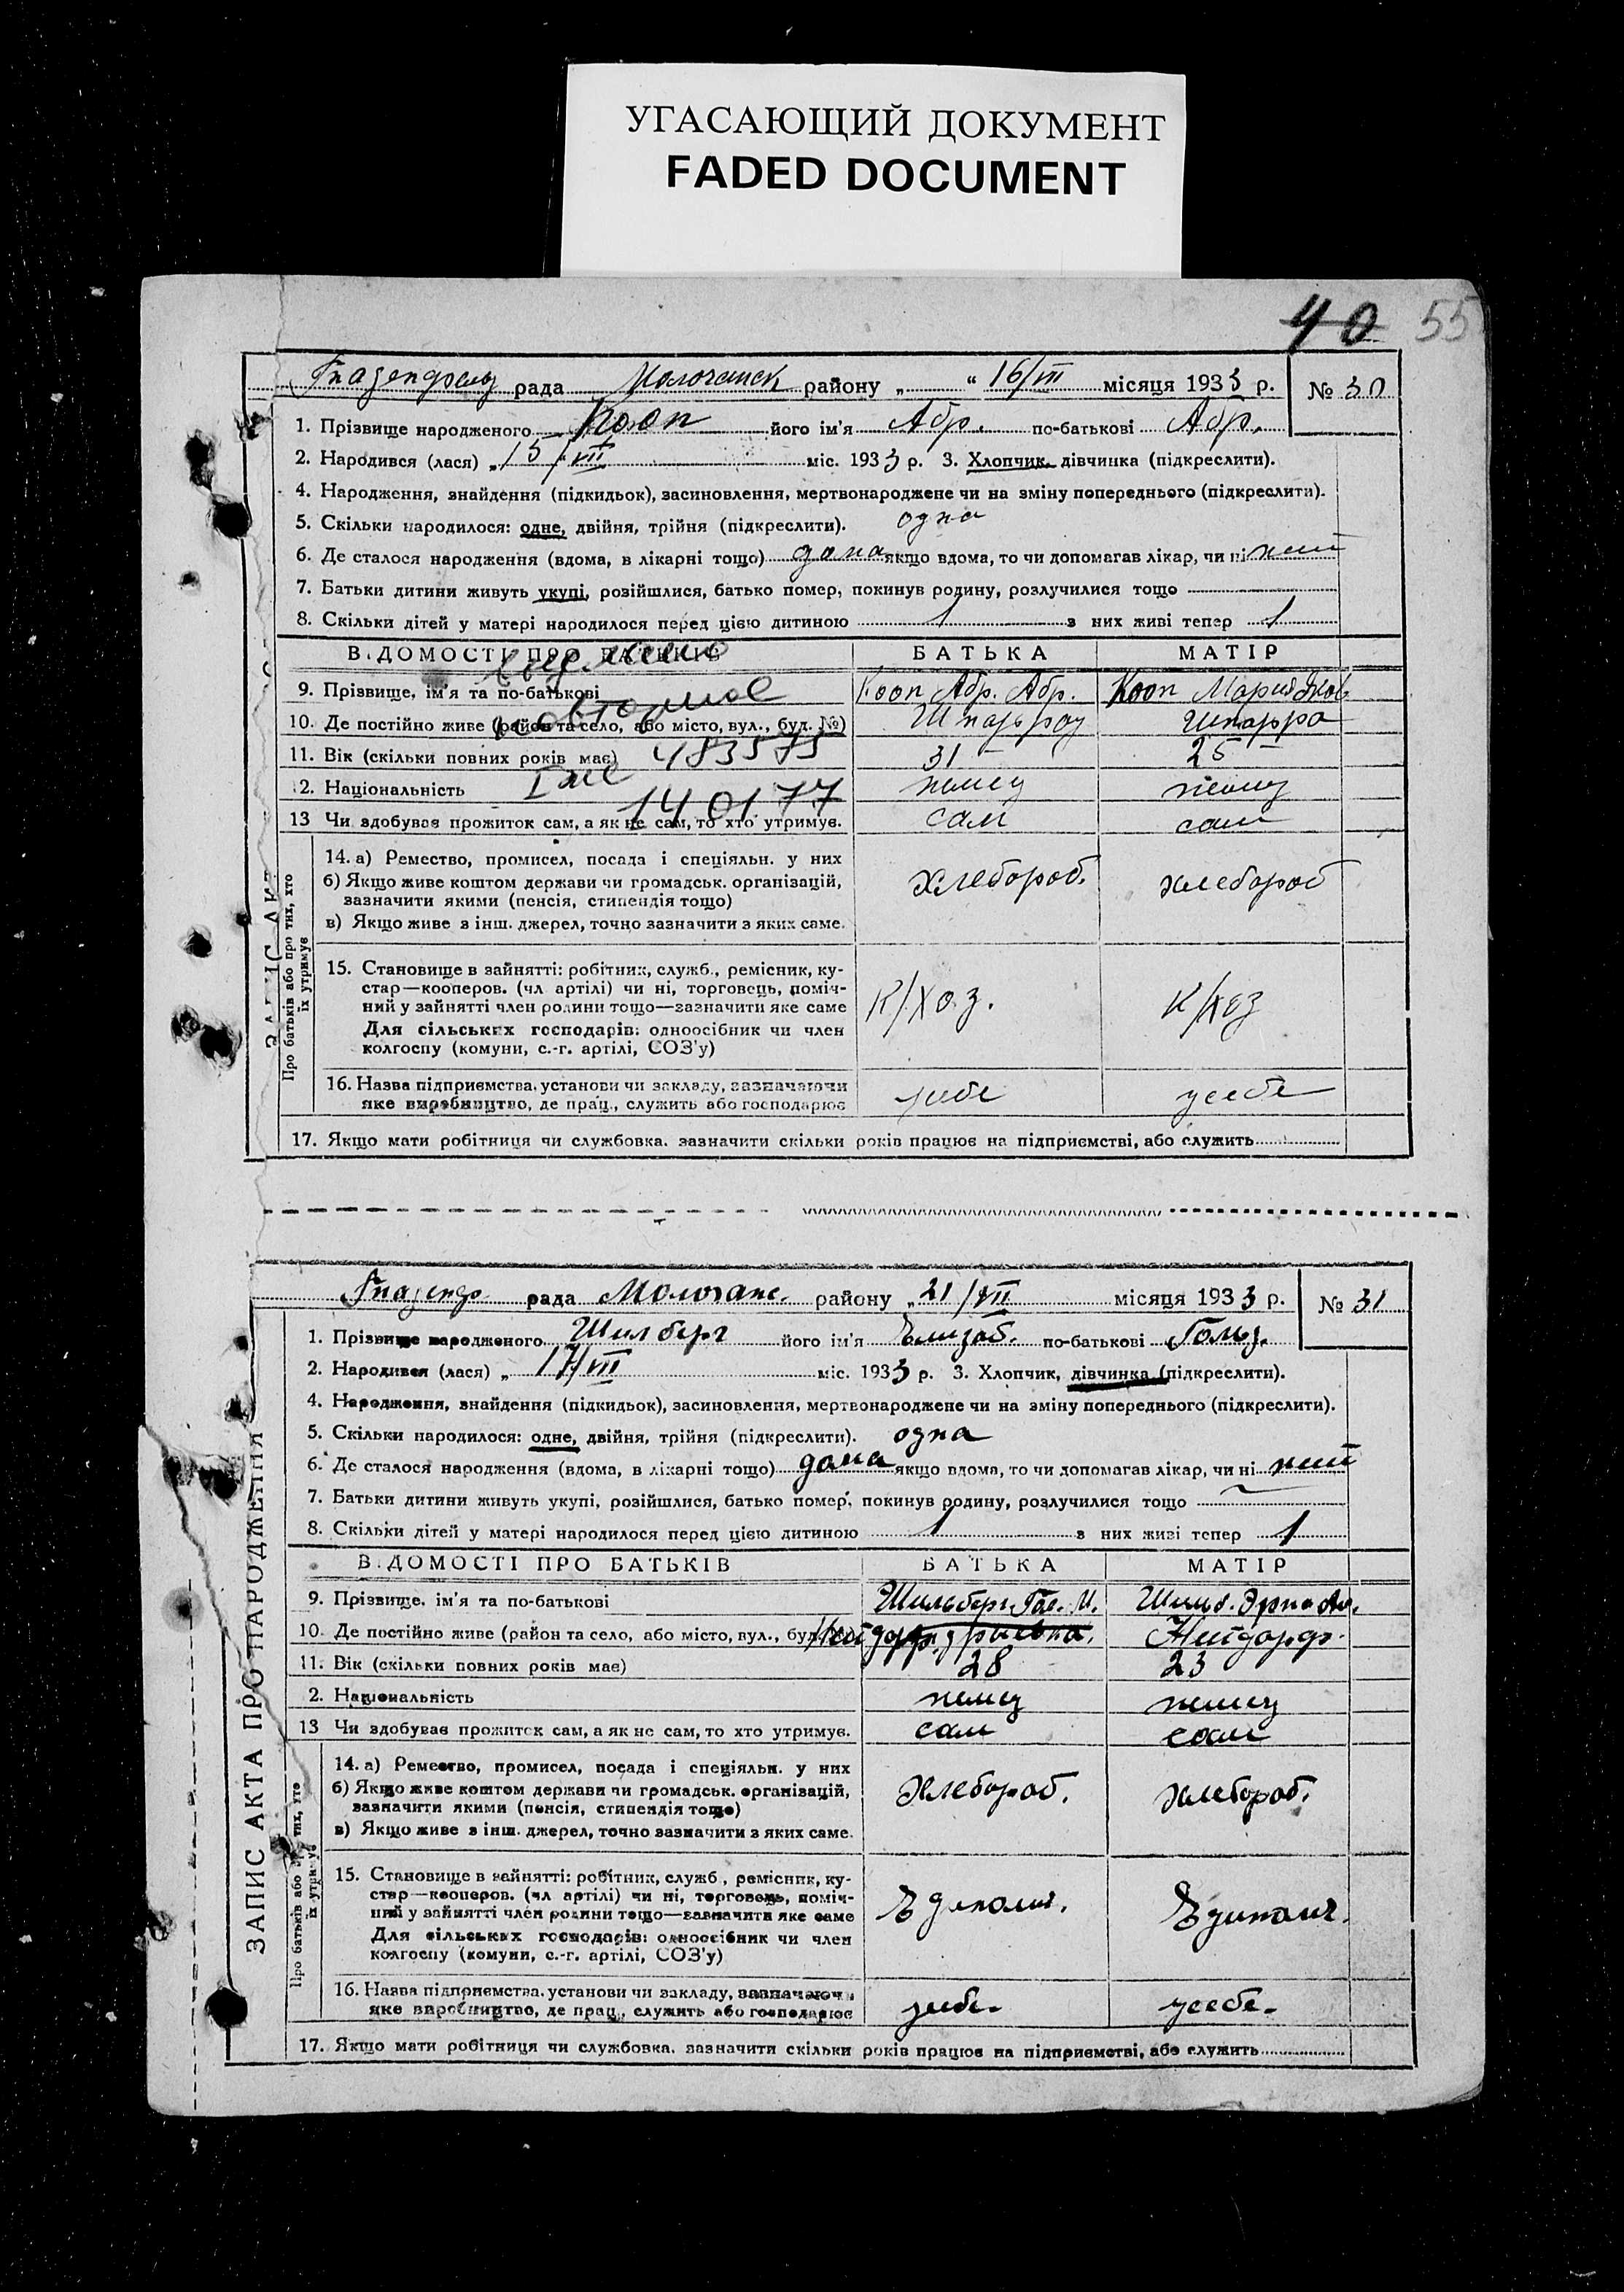 УГАСАЮЩИЙ ДОКУМЕНТ
FADED DOCUMENT
40 55
рада Молочанск району „ “ 16/VII місяця 1933 р. № 30
1. Прізвище народженого Кооп його ім'я Абр. по-батькові Абр.
2. Народився (лася) „15/VII міс. 1933 р. 3. Хлопчик, дівчинка (підкреслити).
4. Народження, знайдення (підкидьок), засиновлення, мертвонароджене чи на зміну попереднього (підкреслити).
5. Скільки народилося: одне, двійня, трійня (підкреслити). одна
6. Де сталося народження (вдома, в лікарні тощо) дома якщо вдома, то чи допомагав лікар, чи ні нет
7. Батьки дитини живуть укупі, розійшлися, батько помер, покинув родину, розлучилися тощо
8. Скільки дітей у матері народилося перед цією дитиною 1 з них живі тепер 1
ВІДОМОСТІ ПРО БАТЬКІВ БАТЬКА МАТІР
9. Прізвище, ім'я та по-батькові Кооп Абр. Абр. Кооп Мария Яков
10. Де постійно живе (район та село, або місто, вул., буд. №)
повторное
11. Вік (скільки повних років має) 483575 31 25
2. Національність немец немец
140177
13 Чи здобував прожиток сам, а як не сам, то хто утримує. сам сам
Про батьків або про тих, хто їх утримує
14. а) Ремество, промисел, посада і спеціяльн. у них
б) Якщо живе коштом держави чи громадськ. організацій, хлебороб. хлебороб
зазначити якими (пенсія, стипендія тощо)
в) Якщо живе з інш. джерел, точно зазначити з яких саме.
15. Становище в зайнятті: робітник, служб., ремісник, ку-
стар—кооперов. (чл артілі) чи ні, торговець, поміч-
ний у зайнятті член родини тощо—зазначити яке саме К/хоз. К/хоз
Для сільських господарів: одноосібник чи член
колгоспу (комуни, с.-г. артілі, СОЗ'у)
16. Назва підприємства, установи чи закладу, зазначаючи
яке виробництво, де прац., служить або господарює у себе у себе
17. Якщо мати робітниця чи службовка, зазначити скільки років працює на підприємстві, або служить
ЗАПИС АКТА ПРО НАРОДЖЕННЯ
рада Молочанс. району „21/VII місяця 1933 р. № 31
1. Прізвище народженого Шилберг його ім'я Елизаб. по-батькові
2. Народився (лася) „17/VII міс. 1933 р. 3. Хлопчик, дівчинка (підкреслити).
4. Народження, знайдення (підкидьок), засиновлення, мертвонароджене чи на зміну попереднього (підкреслити).
5. Скільки народилося: одне, двійня, трійня (підкреслити). одна
6. Де сталося народження (вдома, в лікарні тощо) дома якщо вдома, то чи допомагав лікар, чи ні нет
7. Батьки дитини живуть укупі, розійшлися, батько помер, покинув родину, розлучилися тощо
8. Скільки дітей у матері народилося перед цією дитиною 1 з них живі тепер 1
ВІДОМОСТІ ПРО БАТЬКІВ БАТЬКА МАТІР
9. Прізвище, ім'я та по-батькові Шильберг
10. Де постійно живе (район та село, або місто, вул., буд. №) Нейдорф.
11. Вік (скільки повних років має) 28 23
2. Національність немец немец
13 Чи здобував прожиток сам, а як не сам, то хто утримує. сам сам
Про батьків або про тих, хто їх утримує
14. а) Ремество, промисел, посада і спеціяльн. у них
б) Якщо живе коштом держави чи громадськ. організацій, хлебороб. хлебороб.
зазначити якими (пенсія, стипендія тощо)
в) Якщо живе з інш. джерел, точно зазначити з яких саме.
15. Становище в зайнятті: робітник, служб., ремісник, ку-
стар—кооперов. (чл артілі) чи ні, торговець, поміч-
ний у зайнятті член родини тощо—зазначити яке саме Едиполич. Едиполич.
Для сільських господарів: одноосібник чи член
колгоспу (комуни, с.-г. артілі, СОЗ'у)
16. Назва підприємства, установи чи закладу, зазначаючи
яке виробництво, де прац., служить або господарює у себе. у себе.
17. Якщо мати робітниця чи службовка, зазначити скільки років працює на підприємстві, або служить